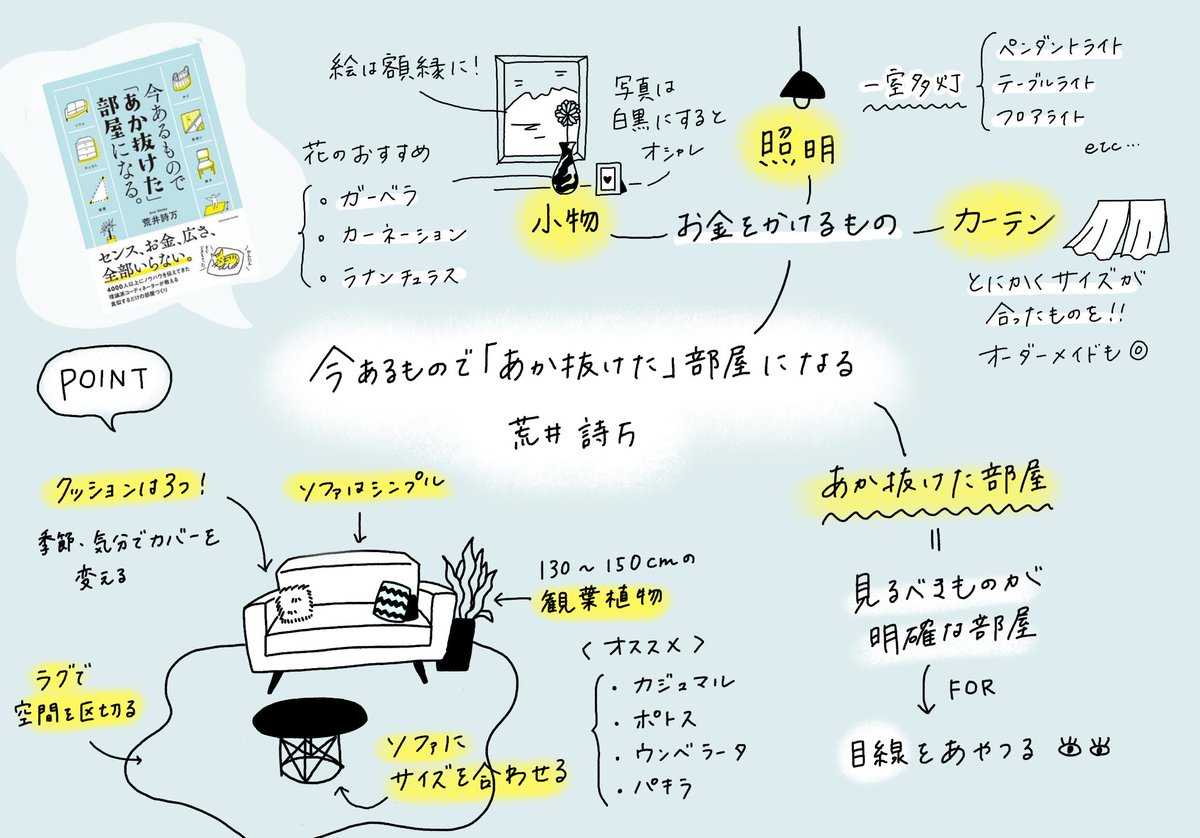 今あるもので
「あか抜けた」
部屋になる。
荒井詩万
センス、お金、広さ、
全部いらない。
4000人以上にノウハウを伝えてきた
理論派コーディネーターが教える
真似するだけの部屋づくり
絵は額縁に!
写真は
白黒にすると
オシャレ
花のおすすめ
。ガーベラ
。カーネーション
。ラナンチュラス
小物
照明
一室多灯
ペンダントライト
テーブルライト
フロアライト
etc…
お金をかけるもの
カーテン
とにかくサイズが
合ったものを!!
オーダーメイドも◎
今あるもので「あか抜けた」部屋になる
荒井詩万
POINT
クッションは3つ!
季節、気分でカバーを
変える
ソファはシンプル
130〜150cmの
観葉植物
〈オススメ〉
・ガジュマル
・ポトス
・ウンベラータ
・パキラ
ラグで
空間を区切る
ソファに
サイズを合わせる
あか抜けた部屋
=
見るべきものが
明確な部屋
↓ FOR
目線をあやつる